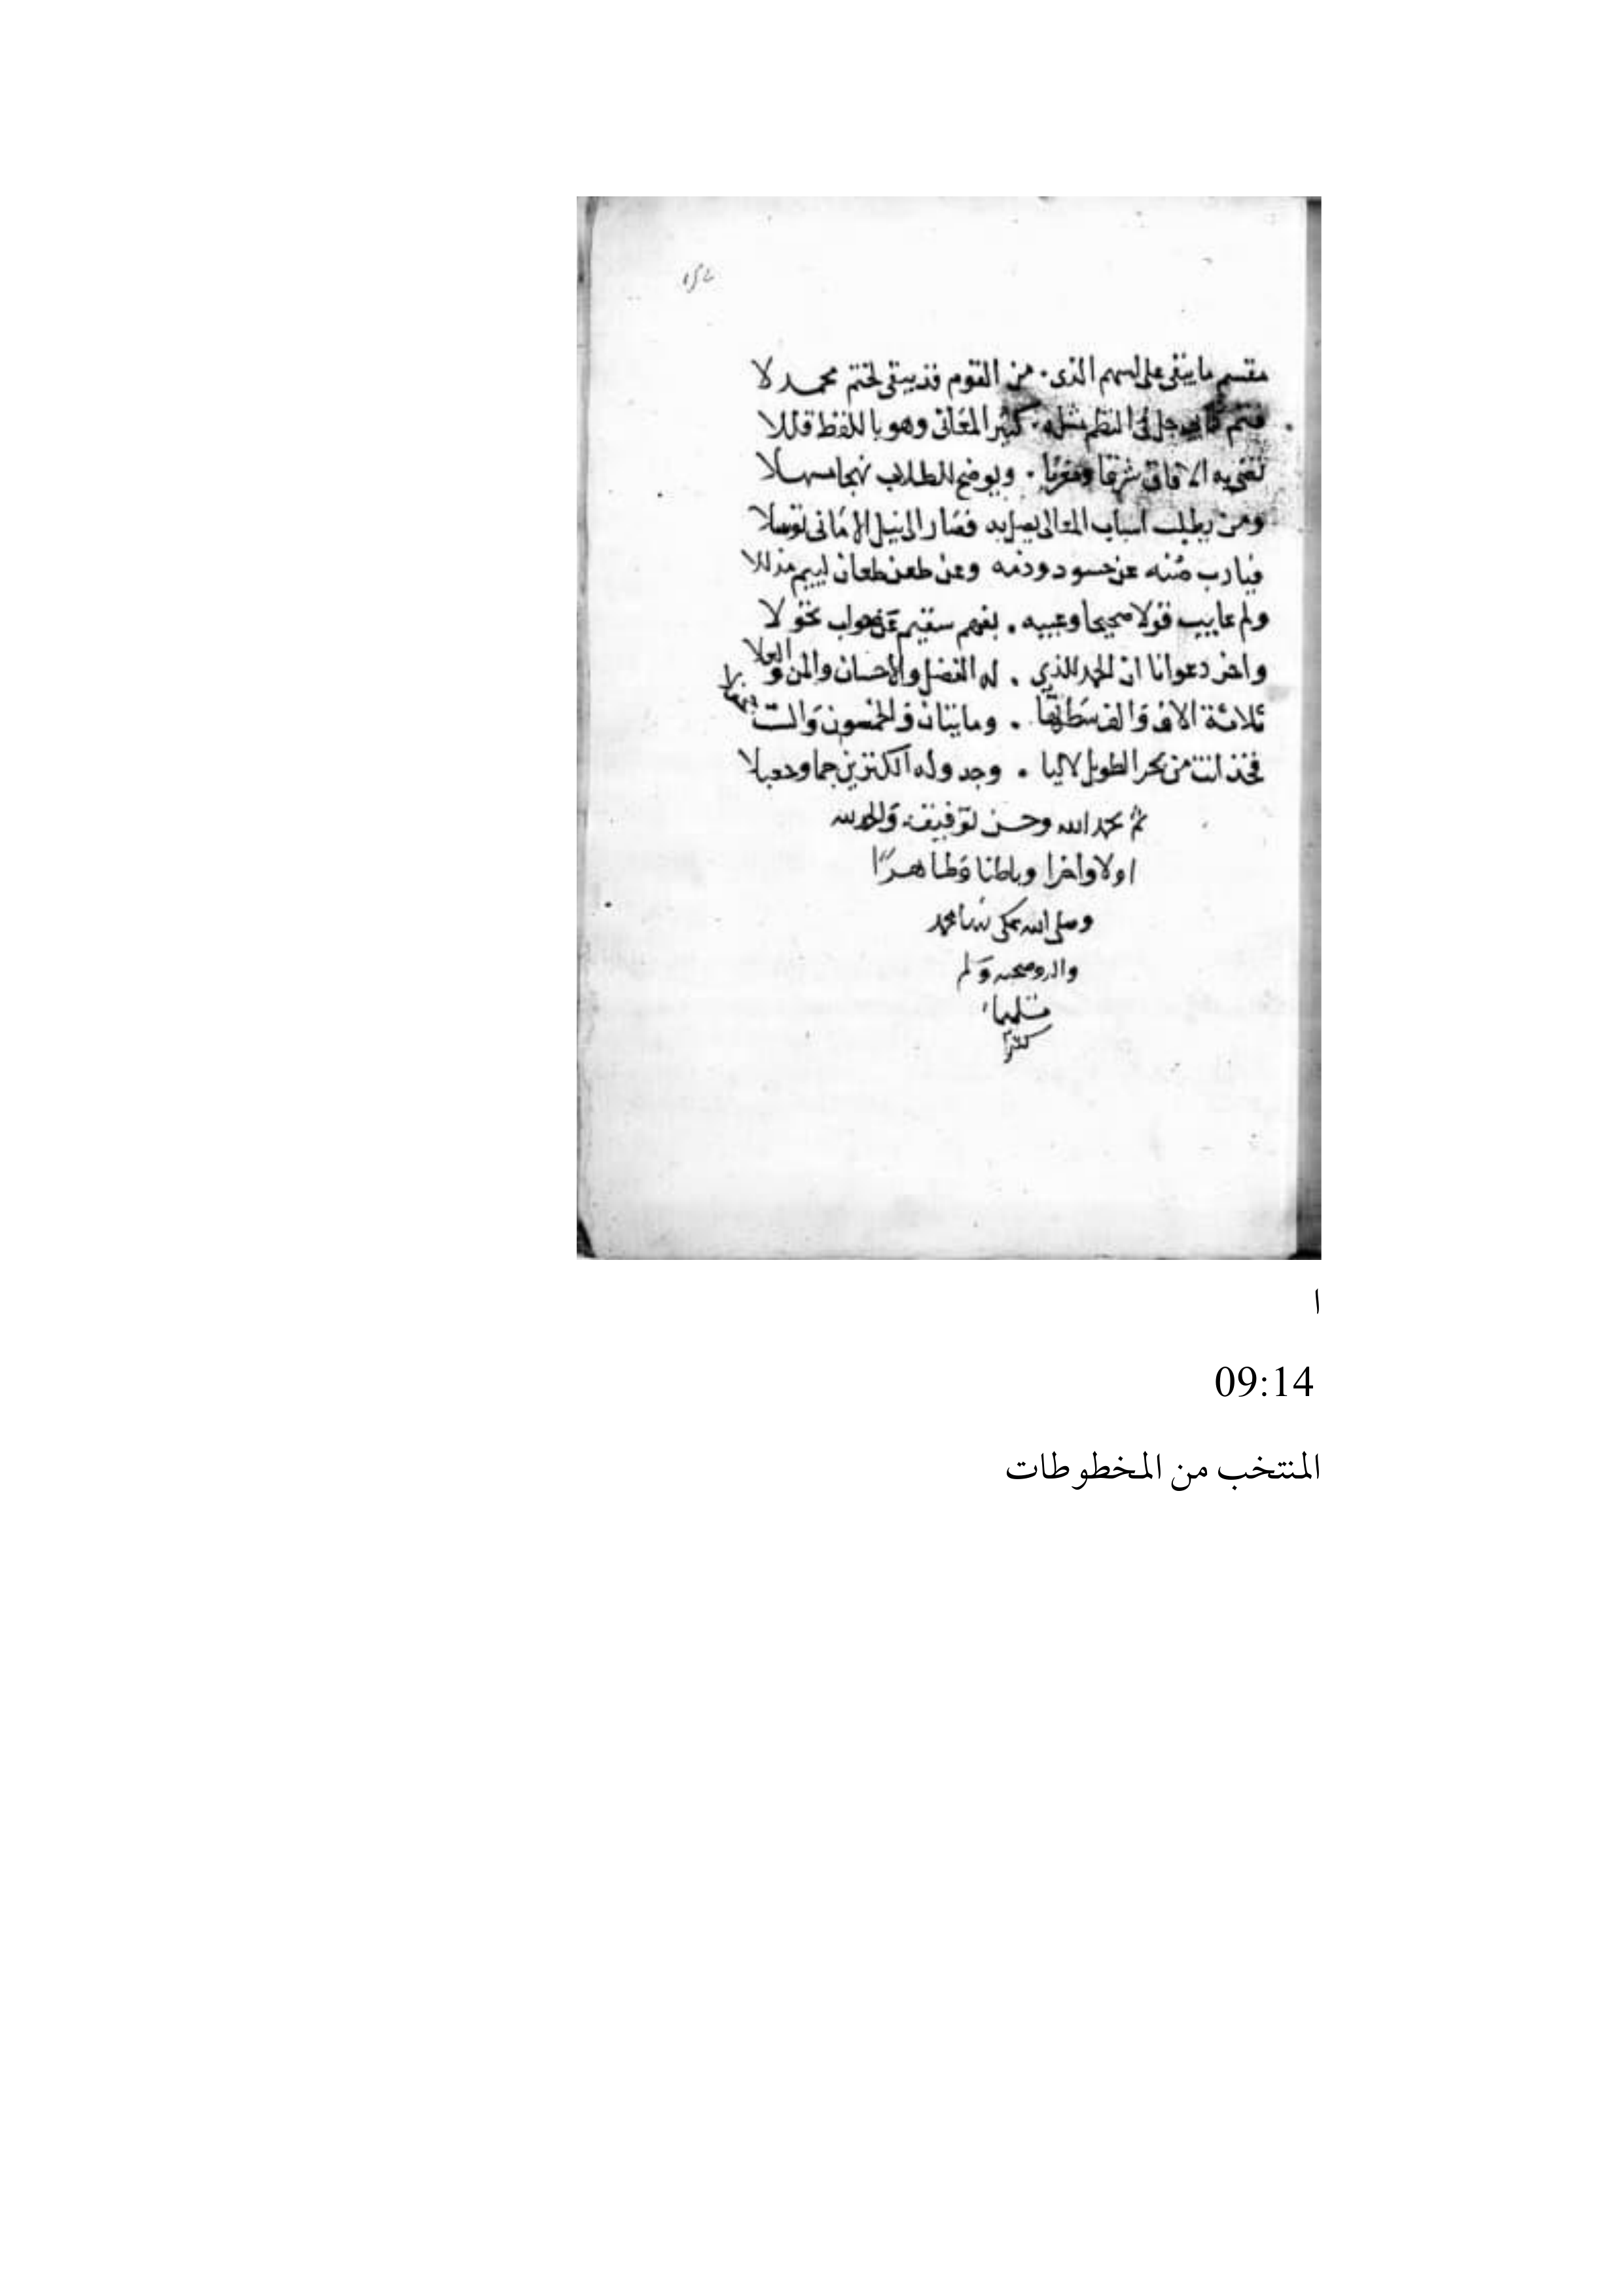 مقسم ما يبقى على السهم الذى . من القوم قد يبقى لختم محمد لا
فتم كتاب جل فى النظم مثله . كثير المعانى وهو باللفظ قللا
تضى به الافاق شرقا ومغربا . ويوضح للطلاب نهجا مسهلا
ومن يطلب اسباب المعالى يصل به فصار الى نيل الامانى توسلا
فيارب صنه عن حسود وذمه وعن طعن طعان لييم مذللا
ولم عايب قولا صحيحا وعيبه . بفهم سقيم عن صواب تحولا
واخر دعوانا ان الحمد للذي . له الفضل والاحسان والمن والعلا
ثلاثة الاف والف . ومايتان والخمسون والست
فخذ انت من بحر الطويل لاليا . وجدوله الكنزين
تم بحمد الله وحسن توفيقه والحمد لله
اولا واخرا وباطنا وظاهرا
وصلى الله على سيدنا محمد
واله وصحبه وسلم
تسليما
كثيرا
ا
09:14
المنتخب من المخطوطات